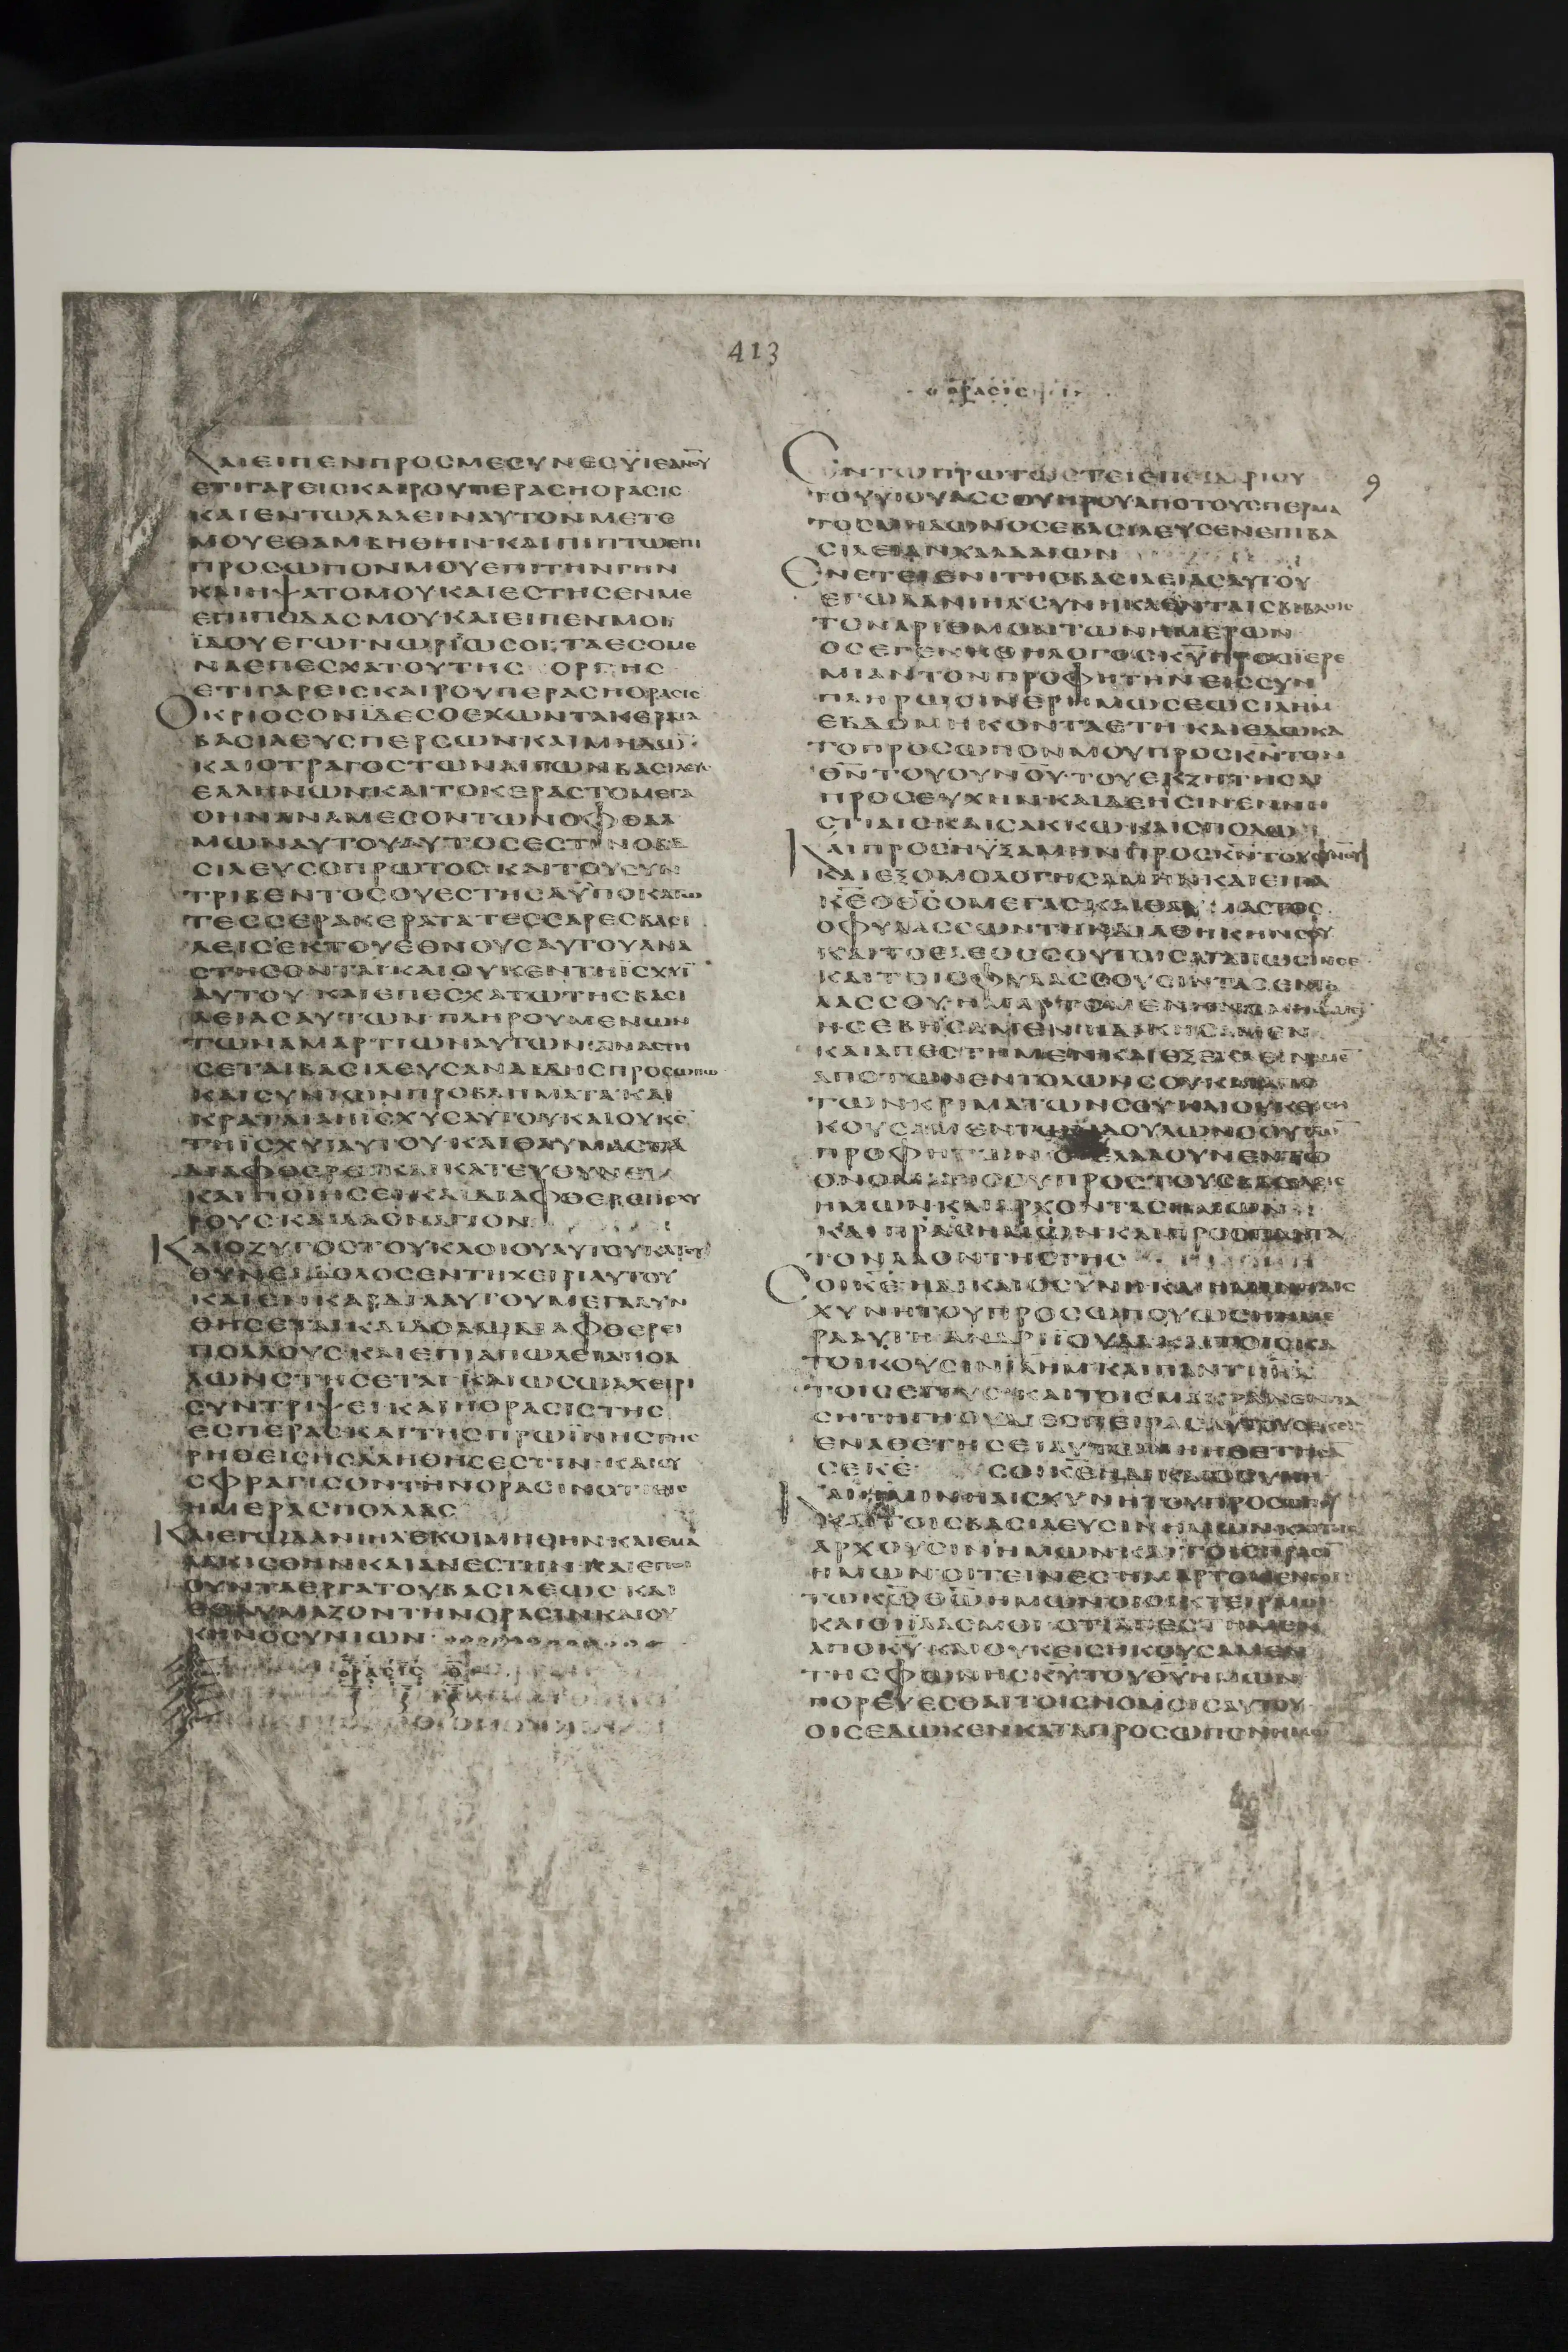 413
ΟΡΑCΙC
ΚΑΙΕΙΠΕΝΠΡΟCΜΕCΥΝΕCΫΙΕΑΝΟΥ
ΕΤΙΓΑΡΕΙCΚΑΙΡΟΥΠΕΡΑCΗΟΡΑCΙC
ΚΑΙΕΝΤΩΛΑΛΕΙΝΑΥΤΟΝΜΕΤΕ
ΜΟΥΕΘΑΜΒΗΘΗΝΚΑΙΠΙΠΤΩΕΠΙ
ΠΡΟCΩΠΟΝΜΟΥΕΠΙΤΗΝΓΗΝ
ΚΑΙΗΨΑΤΟΜΟΥΚΑΙΕCΤΗCΕΝΜΕ
ΕΠΙΠΟΔΑCΜΟΥΚΑΙΕΙΠΕΝΜΟΙ
ΪΔΟΥΕΓΩΓΝΩΡΙΖΩCΟΙΤΑΕCΟΜΕ
ΝΑΕΠΕCΧΑΤΟΥΤΗC ΟΡΓΗC
ΕΤΙΓΑΡΕΙCΚΑΙΡΟΥΠΕΡΑCΗΟΡΑCΙC
ΟΚΡΙΟCΟΝΪΔΕCΟΕΧΩΝΤΑΚΕΡΑΤΑ
ΒΑCΙΛΕΥCΠΕΡCΩΝΚΑΙΜΗΔΩ
ΚΑΙΟΤΡΑΓΟCΤΩΝΑΙΓΩΝΒΑCΙΛΕΥC
ΕΛΛΗΝΩΝΚΑΙΤΟΚΕΡΑCΤΟΜΕΓΑ
ΟΗΝΑΝΑΜΕCΟΝΤΩΝΟΦΘΑΛ
ΜΩΝΑΥΤΟΥΑΥΤΟCΕCΤΙΝΟΒΑ
CΙΛΕΥCΟΠΡΩΤΟC ΚΑΙΤΟΥCΥΝ
ΤΡΙΒΕΝΤΟCΟΥΕCΤΗCΑΫΠΟΚΑΤΩ
ΤΕCCΕΡΑΚΕΡΑΤΑΤΕCCΑΡΕCΒΑCΙ
ΛΕΙCΕΚΤΟΥΕΘΝΟΥCΑΥΤΟΥΑΝΑ
CΤΗCΟΝΤΑΙΚΑΙΟΥΚΕΝΤΗΪCΧΥΪ
ΑΥΤΟΥ ΚΑΙΕΠΕCΧΑΤΩΤΗCΒΑCΙ
ΛΕΙΑCΑΥΤΩΝ ΠΛΗΡΟΥΜΕΝΩΝ
ΤΩΝΑΜΑΡΤΙΩΝΑΥΤΩΝΑΝΑCΤΗ
CΕΤΑΙΒΑCΙΛΕΥCΑΝΑΙΔΗCΠΡΟCΩΠΩ
ΚΑΙCΥΝΙΩΝΠΡΟΒΛΗΜΑΤΑ ΚΑΙ
ΚΡΑΤΑΙΑΗΪCΧΥCΑΥΤΟΥΚΑΙΟΥΚΕ
ΤΗΪCΧΥΪΑΥΤΟΥ ΚΑΙΘΑΥΜΑCΤΑ
ΔΙΑΦΘΕΡΕΙΚΑΙΚΑΤΕΥΘΥΝΕΙ
ΚΑΙΠΟΙΗCΕΙΚΑΙΔΙΑΦΘΕΡΕΙΪCΧΥ
ΡΟΥCΚΑΙΛΑΟΝΑΓΙΟΝ
ΚΑΙΟΖΥΓΟCΤΟΥΚΛΟΙΟΥΑΥΤΟΥΚΑΤΕΥ
ΘΥΝΕΙΔΟΛΟCΕΝΤΗΧΕΙΡΙΑΥΤΟΥ
ΚΑΙΕΝΚΑΡΔΙΑΑΥΤΟΥΜΕΓΑΛΥΝ
ΘΗCΕΤΑΙΚΑΙΔΟΛΩΔΙΑΦΘΕΡΕΙ
ΠΟΛΛΟΥCΚΑΙΕΠΙΑΠΩΛΕΙΑΠΟΛ
ΛΩΝCΤΗCΕΤΑΙ ΚΑΙΩCΩΑΧΕΙΡΙ
CΥΝΤΡΙΨΕΙ ΚΑΙΗΟΡΑCΙCΤΗC
ΕCΠΕΡΑCΚΑΙΤΗCΠΡΩΪΝΗCΤΗC
ΡΗΘΕΙCΗCΑΛΗΘΗCΕCΤΙΝ ΚΑΙCΥ
CΦΡΑΓΙCΟΝΤΗΝΟΡΑCΙΝΟΤΙΕΙC
ΗΜΕΡΑCΠΟΛΛΑC
ΚΑΙΕΓΩΔΑΝΙΗΛΕΚΟΙΜΗΘΗΝΚΑΙΕΜΑ
ΛΑΚΙCΘΗΝΚΑΙΑΝΕCΤΗΝ ΚΑΙΕΠΟΙ
ΟΥΝΤΑΕΡΓΑΤΟΥΒΑCΙΛΕΩC ΚΑΙ
ΕΘΑΥΜΑΖΟΝΤΗΝΟΡΑCΙΝΚΑΙΟΥ
ΚΗΝΟCΥΝΙΩΝ
ΟΡΑCΙC
9
ΕΝΤΩΠΡΩΤΩΕΤΕΙΕΠΙΔΑΡΙΟΥ
ΤΟΥΥΙΟΥΑCCΟΥΗΡΟΥΑΠΟΤΟΥCΠΕΡΜΑ
ΤΟCΜΗΔΩΝΟCΕΒΑCΙΛΕΥCΕΝΕΠΙΒΑ
CΙΛΕΙΑΝΧΑΛΔΑΙΩΝ
ΕΝΕΤΕΙΕΝΙΤΗCΒΑCΙΛΕΙΑCΑΥΤΟΥ
ΕΓΩΔΑΝΙΗΛCΥΝΗΚΑΕΝΤΑΙCΒΙΒΛΟΙC
ΤΟΝΑΡΙΘΜΟΝΤΩΝΗΜΕΡΩΝ
ΟCΕΓΕΝΗΘΗΛΟΓΟCΚΥΠΡΟCΪΕΡΕ
ΜΙΑΝΤΟΝΠΡΟΦΗΤΗΝΕΙCCΥΝ
ΠΛΗΡΩCΙΝΕΡΗΜΩCΕΩCΙΛΗΜ
ΕΒΔΟΜΗΚΟΝΤΑΕΤΗ ΚΑΙΕΔΩΚΑ
ΤΟΠΡΟCΩΠΟΝΜΟΥΠΡΟCΚΝΤΟΝ
ΘΝ ΤΟΥΟΥΝΟΥ ΤΟΥΕΚΖΗΤΗCΑΙ
ΠΡΟCΕΥΧΗΝΚΑΙΔΕΗCΙΝΕΝΝΗ
CΤΙΑΙCΚΑΙCΑΚΚΩΚΑΙCΠΟΔΩ
ΚΑΙΠΡΟCΗΥΞΑΜΗΝΠΡΟCΚΝΤΟΝΘΝΜΟΥ
ΚΑΙΕΞΟΜΟΛΟΓΗCΑΜΗΝΚΑΙΕΙΠΑ
ΚΕΟΘCΟΜΕΓΑCΚΑΙΘΑΥΜΑCΤΟC
ΟΦΥΛΑCCΩΝΤΗΝΔΙΑΘΗΚΗΝCΟΥ
ΚΑΙΤΟΕΛΕΟCCΟΥΤΟΙCΑΓΑΠΩCΙΝCΕ
ΚΑΙΤΟΙCΦΥΛΑCCΟΥCΙΝΤΑCΕΝΤΟ
ΛΑCCΟΥ
ΗCΕΒΗCΑΜΕΝΗΔΙΚΗCΑΜΕΝ
ΚΑΙΑΠΕCΤΗΜΕΝΚΑΙΕΞΕΚΛΕΙΝΑΜΕ
ΑΠΟΤΩΝΕΝΤΟΛΩΝCΟΥΚΑΙΑΠΟ
ΤΩΝΚΡΙΜΑΤΩΝCΟΥΚΑΙΟΥΚΕΙCΗ
ΚΟΥCΑΜΕΝΤΩΝΔΟΥΛΩΝCΟΥΤΩ
ΠΡΟΦΗΤΩΝΟΙΕΛΑΛΟΥΝΕΝΤΩ
ΟΝΟΜΑΤΙCΟΥΠΡΟCΤΟΥCΒΑCΙΛΕΙC
ΗΜΩΝΚΑΙΑΡΧΟΝΤΑCΗΜΩΝ
ΚΑΙΠΡΑCΗΜΩΝΚΑΙΠΡΟCΠΑΝΤΑ
ΤΟΝΛΑΟΝΤΗCΓΗC
CΟΙΚΕΗΔΙΚΑΙΟCΥΝΗΚΑΙΗΜΙΝΗΑΙC
ΧΥΝΗΤΟΥΠΡΟCΩΠΟΥΩCΗΗΜΕ
ΡΑΑΥΤΗ ΑΝΔΡΙΪΟΥΔΑ
ΤΟΙΚΟΥCΙΝΙΛΗΜΚΑΙΠΑΝΤΙΙΗΛ
ΤΟΙCΕΓΓΥCΚΑΙΤΟΙCΜΑΚΡΑΝ
ΕΝΑΘΕΤΗCΕΙΑΥΤΩΝΗΗΘΕΤΗCΑ
CΕΚΕ CΟΙΚΕΗΔΙΚΑΙΟCΥΝΗ
ΚΑΙΗΜΙΝΗΑΙCΧΥΝΗΤΟΥΠΡΟCΩΠΟΥ
ΚΑΙΤΟΙCΒΑCΙΛΕΥCΙΝΗΜΩΝΚΑΙΤΟΙC
ΑΡΧΟΥCΙΝΗΜΩΝΚΑΙΤΟΙCΠΡΑCΙ
ΗΜΩΝΟΙΤΕΙΝΕCΗΜΑΡΤΟΜΕΝCΟΙ
ΤΩΚΩΘΩΗΜΩΝΟΙΟΙΚΤΕΙΡΜΟΙ
ΚΑΙΟΙΪΛΑCΜΟΙ ΟΤΙΑΠΕCΤΗΜΕΝ
ΑΠΟΚΥ ΚΑΙΟΥΚΕΙCΗΚΟΥCΑΜΕΝ
ΤΗCΦΩΝΗCΚΥΤΟΥΘΥΗΜΩΝ
ΠΟΡΕΥΕCΘΑΙΤΟΙCΝΟΜΟΙCΑΥΤΟΥ
ΟΙCΕΔΩΚΕΝΚΑΤΑΠΡΟCΩΠΟΝΗΜΩ